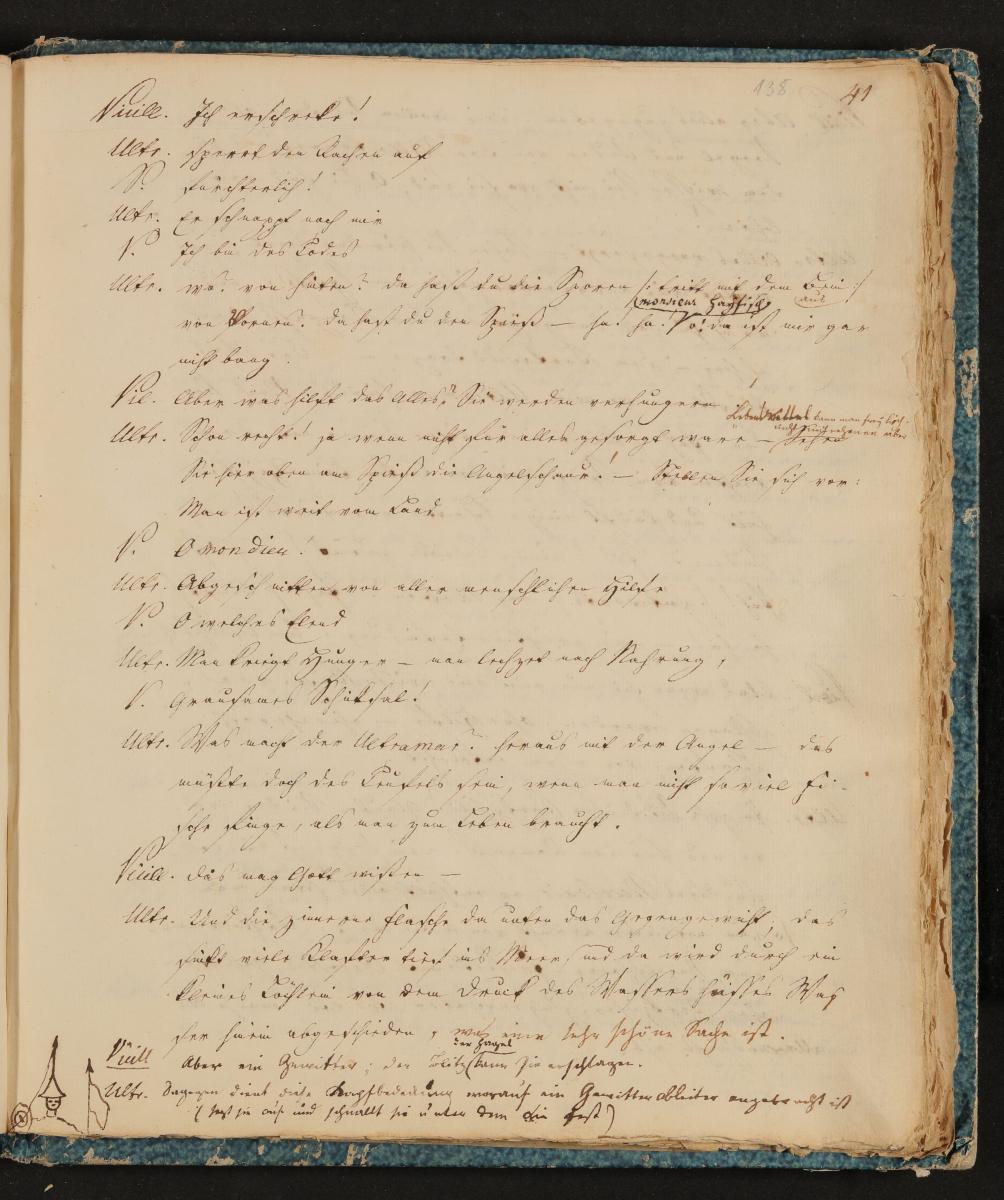 138 41
Viell. Ich erschrecke!
Ultr. sperrt den Rachen auf
V. fürchterlich!
Ultr. Er schnappt nach mir
V. Ich bin des Todes
Ultr. wo? von hinten? da hast du die Sporen /: tritt mit dem Bein :/
aus
(monsieur Hayfisch)
von Vornen? da hast du den Spieß — ha! ha! o! da ist mir gar
nicht bang.
Vil. Aber was hilft das Alles? Sie werden verhungern!
Lebensmittel kann man freylich
nicht
Ultr. Schon recht! ja wenn nicht für alles gesorgt wäre — Sehen
Sie hier oben am Spieß die Angelschnur! — Stellen Sie sich vor:
Man ist weit vom Land
V. O mon dieu!
Ultr. Abgeschnitten von aller menschlichen Hilfe
V. O welches Elend
Ultr. Man kriegt Hunger — man lechzet nach Nahrung,
V. Grausames Schiksal!
Ultr. Was macht der Ultramar? heraus mit der Angel — das
müßte doch des Teufels sein, wenn man nicht so viel Fi-
sche finge, als man zum Leben braucht.
Viell. das mag Gott wissen —
Ultr. Und die zinnerne Flasche da unten das Gegengewicht, das
sinkt viele Klafter tief ins Meer, und da wird durch ein
kleines Löchlein von dem Druck des Wassers süsses Was
ser hinein abgeschieden, was eine sehr schöne Sache ist.
der Hagel
Viell Aber ein Gewitter; der Blitz kann Sie erschlagen.
Ultr. Dagegen dient diese Kopfbedeckung worauf ein Gewitterableiter angebracht ist
(sezt sie auf und schnallt sie unter dem Kin fest)